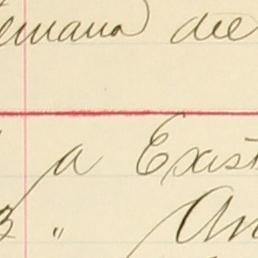 emana del
a Exist
3 " An